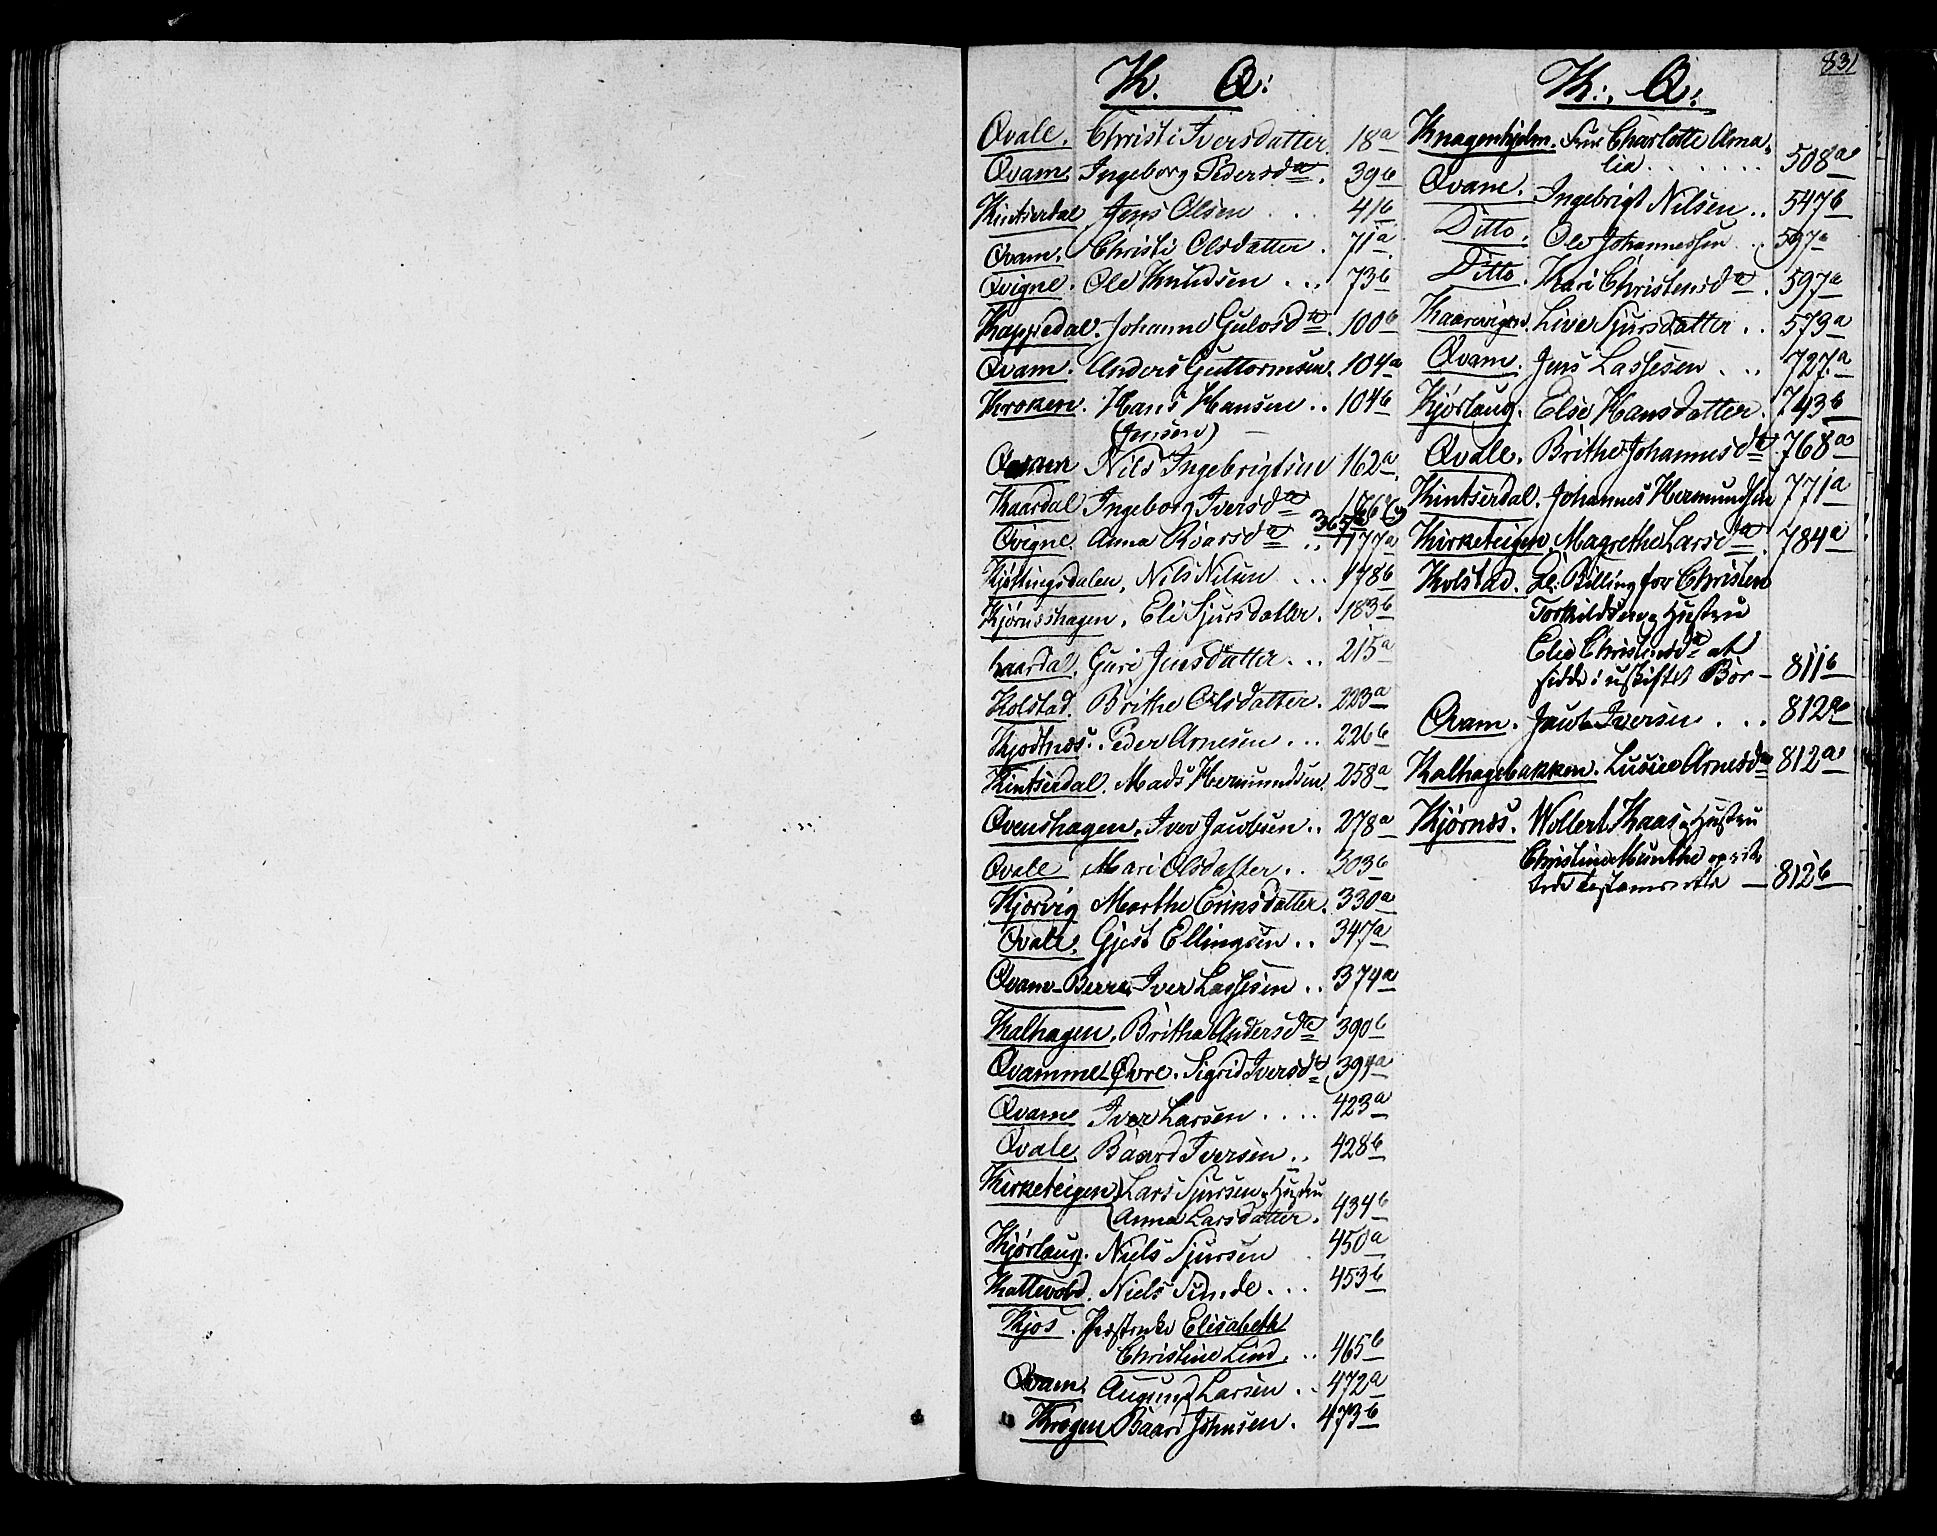 831
K. Q:
Qvale. Christi Iversdatter. 18a
Qvam. Ingeborg Pedersda. 39b
Kintserdal Jens Olsen . . . 41b
Qvam. Christi Olsdatter . 71a
Qvigne. Ole Knudsen . . . 73b
Kappedal. Johanne Gulosdtr. 100b
Qvam. Anders Guttormsen. 104a
Kroken. Hans Hansen . . 104b
(Jensen)
Qvam Nils Ingebrigtsen 162a
Kaardal Ingeborg Iversda 166
Qvigne. Anna Roarsda . . 365a 177a
Kjøttingsdalen. Nils Nilsen . . . 178b
Kjørnshagen. Eli Sjursdatter. 183b
Kaardal. Guri Jensdatter . . . 215a
Kolstad. Brithe Olsdatter. 223a
Kjodtnæs. Peder Arnesen . . . 226b
Kintserdal. Mads Hermundsen. 258a
Qvenshagen. Iver Jacobsen . . 278a
Qvale Mari Olsdatter . . 303b
Kjørvig Marthe Eriksdatter. 330a
Qvale. Gjest Ellingsen . . 347a
Qvam-Berre. Iver Lassesen . . 374a
Kalhagen. Britha Andersda 390b
Qvamme Øvre. Sigrid Iversda 394a
Qvam Iver Larsen . . . . 423a
Qvale. Baard Iversen . . 428b
Kirketeigen) Lars Sjursen og Hustru
(Anna Larsdatter. 434b
Kjørlaug. Niels Sjursen . 450a
Kattevold. Niels Sunde . . . 453b
Kjos. Præstenke Elisabeth
Christine Lind. . . 465b
Qvam. Augund Larsen . . 472a
Krogen Baard Johnsen. 473b
K:. Q:
Knagenhjelm. Frue Charlotte Ama-
lia . . . . . . 508a
Qvane. Ingebrigt Nilsen . . 547b
Ditto. Ole Johannessen . . 597a
Ditto. Kari Christensda. 597a
Kaarevigen. Live Sjursdatter . . 573a
Qvam. Jens Lassesen . . . 727a
Kjørlaug. Else Hansdatter. 743b
Qvale. Brithe Johannesda 768a
Kintserdal. Johannes Hermundsen 771a
Kirketeigen. Magrethe Larsda. 784a
Kolstad. Bevilling for Christen
Torkildsen og Hustru
Elie Christensda at
sidde i uskiftet Boe - 811b
Qvam. Jacob Iversen . . . 812a
Kalhagebakken. Lucie Arnesda 812a
Kjørnes. Wollert Kaas og Hustru
Christine Munthe oprit-
tede testamente — 812b